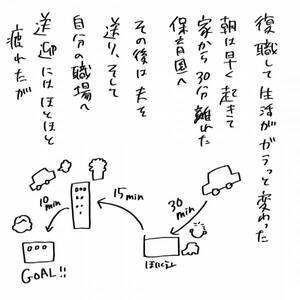 復職して生活がガラっと変わった
朝は早く起きて
家から30分離れた
保育園へ
その後は夫を
送り、そして
自分の職場へ
送迎にはほとほと
疲れたが
30
min
15
min
10
min
ほいくえん
GOAL!!